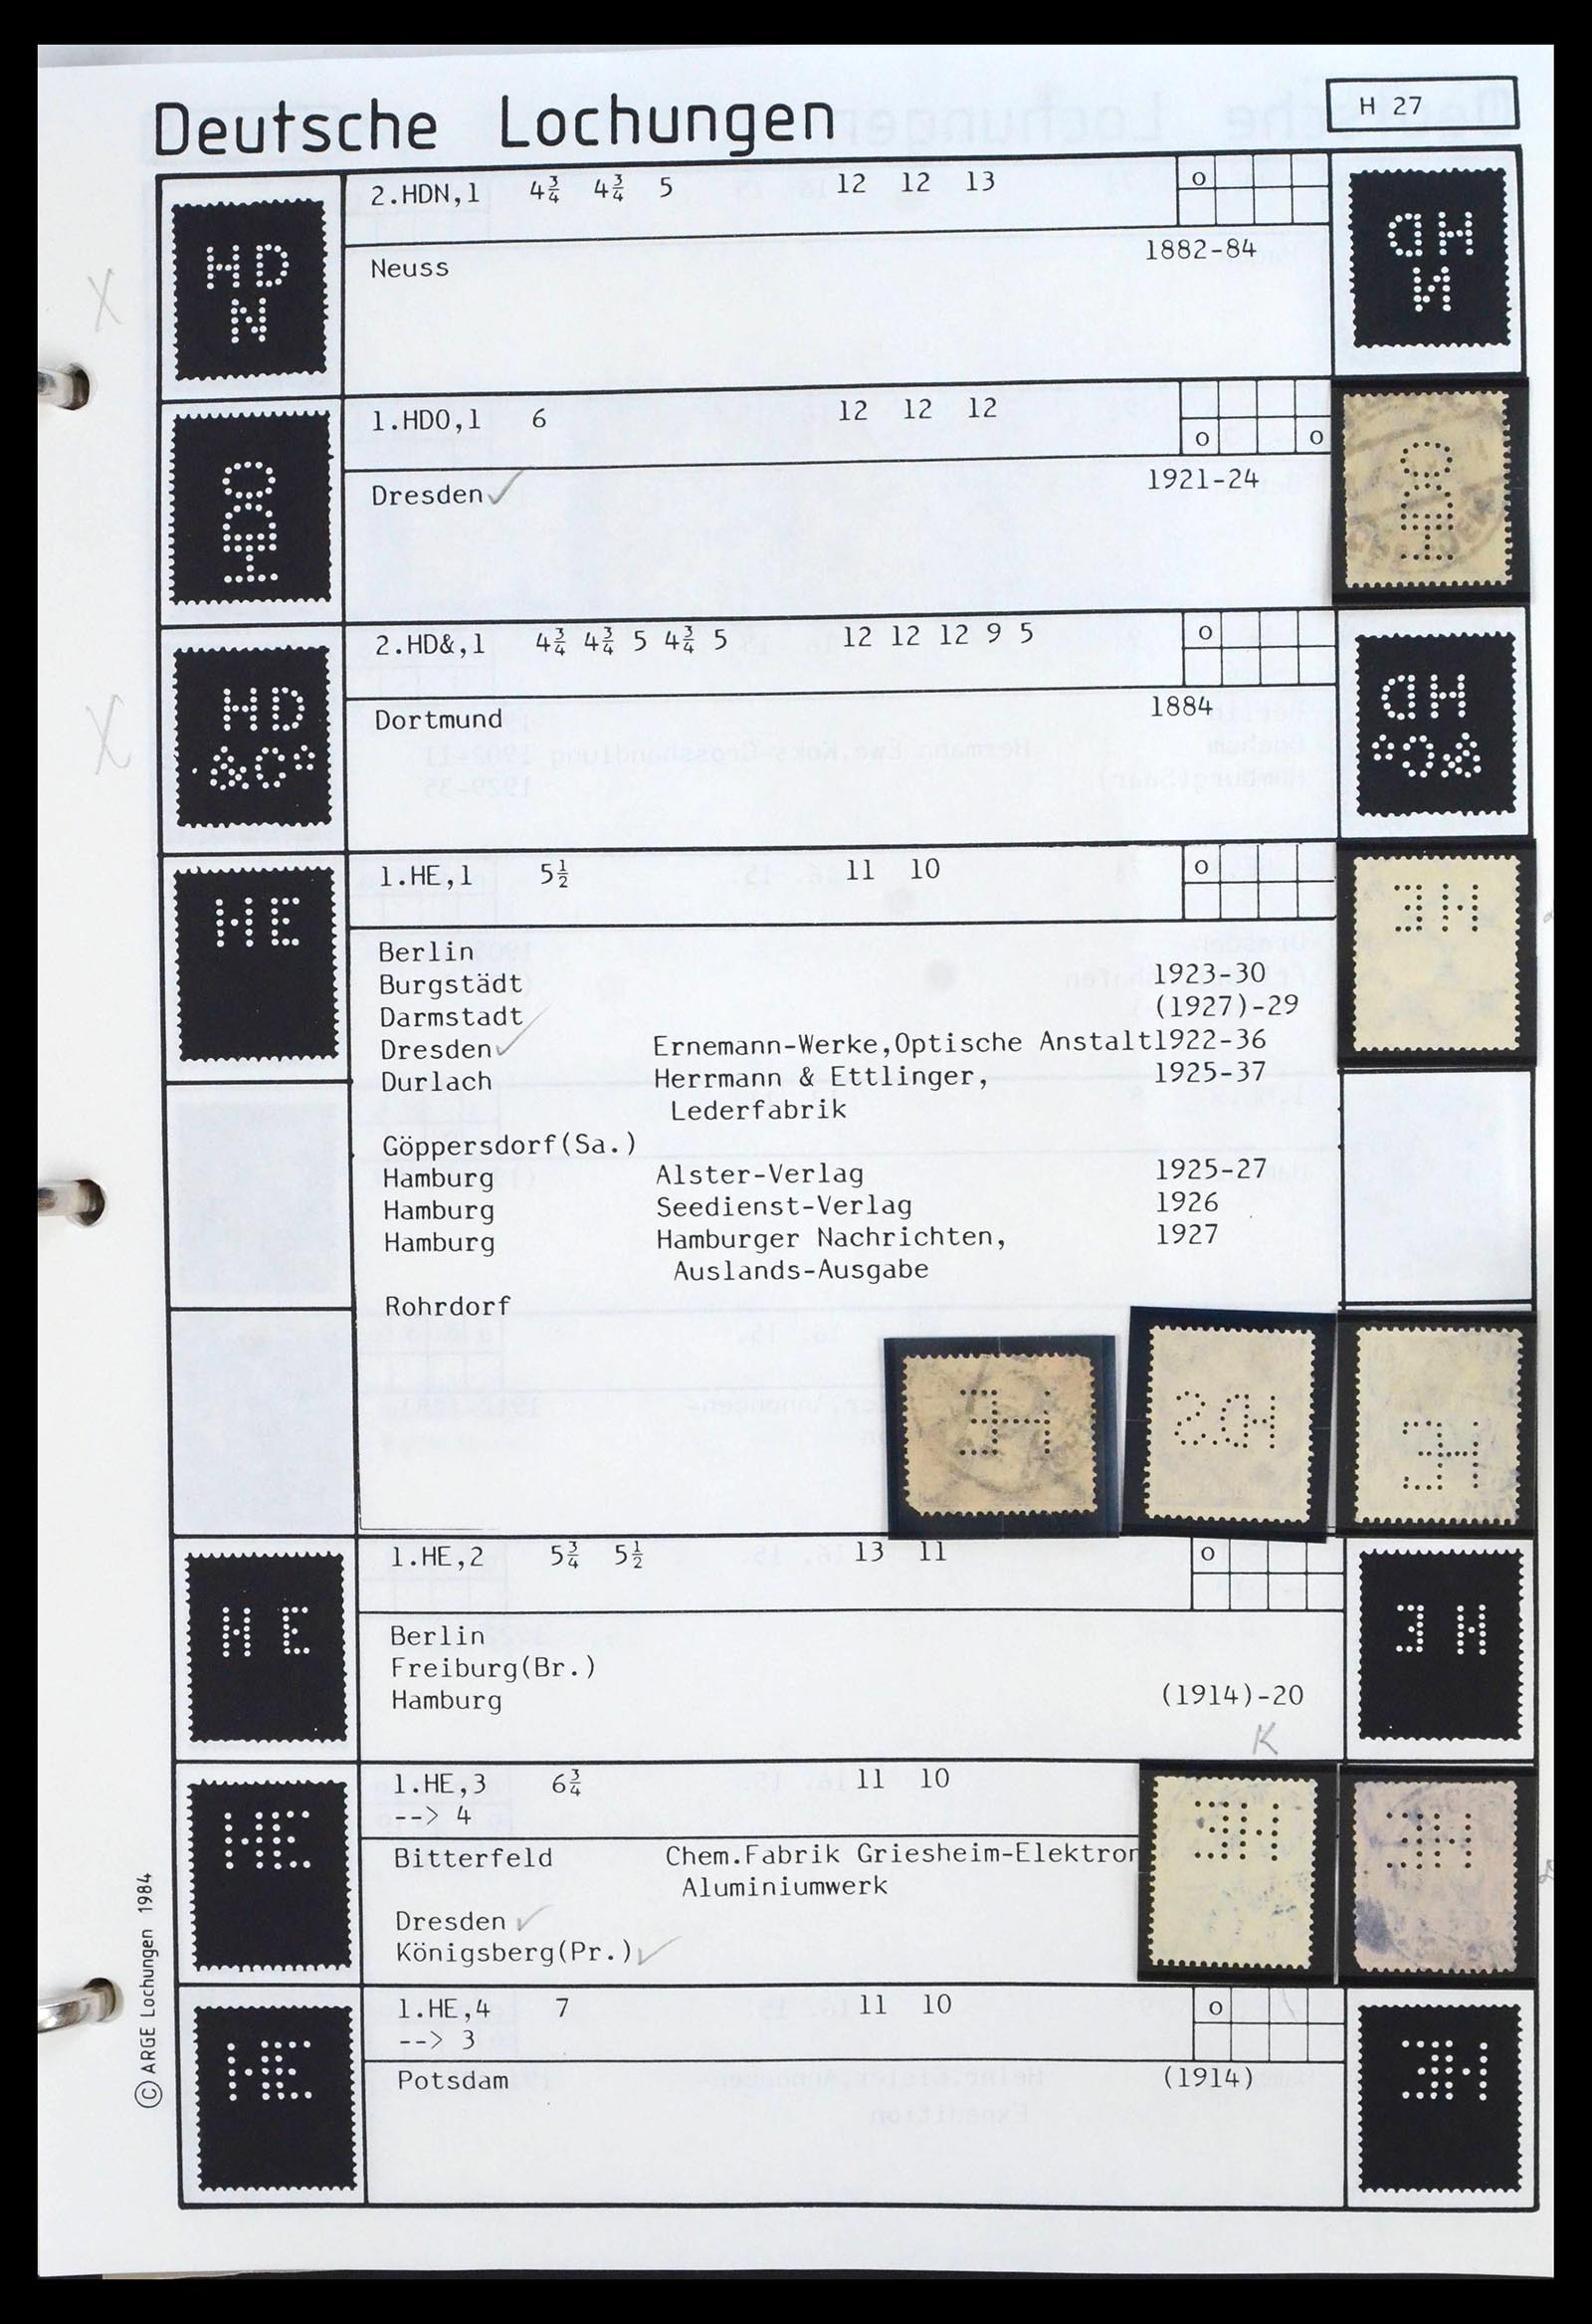 Deutsche Lochungen
H 27
2.HDN,1 4¾ 4¾ 5 12 12 13 o
HD
N
Neuss 1882-84
X
1.HDO,1 6 12 12 12
o o
HDO
Dresden✓ 1921-24
2.HD&,1 4¾ 4¾ 5 4¾ 5 12 12 12 9 5 o
HD
&Co
Dortmund 1884
X
1.HE,1 5½ 11 10 o
HE
Berlin
Burgstädt 1923-30
Darmstadt (1927)-29
Dresden✓ Ernemann-Werke,Optische Anstalt1922-36
Durlach Herrmann & Ettlinger, 1925-37
Lederfabrik
Göppersdorf(Sa.)
Hamburg Alster-Verlag 1925-27
Hamburg Seedienst-Verlag 1926
Hamburg Hamburger Nachrichten, 1927
Auslands-Ausgabe
Rohrdorf
1.HE,2 5¾ 5½ 13 11 o
H E
Berlin
Freiburg(Br.)
Hamburg (1914)-20
K
1.HE,3 6¾ 11 10
--> 4
HE
Bitterfeld Chem.Fabrik Griesheim-Elektron
Aluminiumwerk
Dresden ✓
Königsberg(Pr.)✓
1.HE,4 7 11 10 o
--> 3
HE
Potsdam (1914)
© ARGE Lochungen 1984